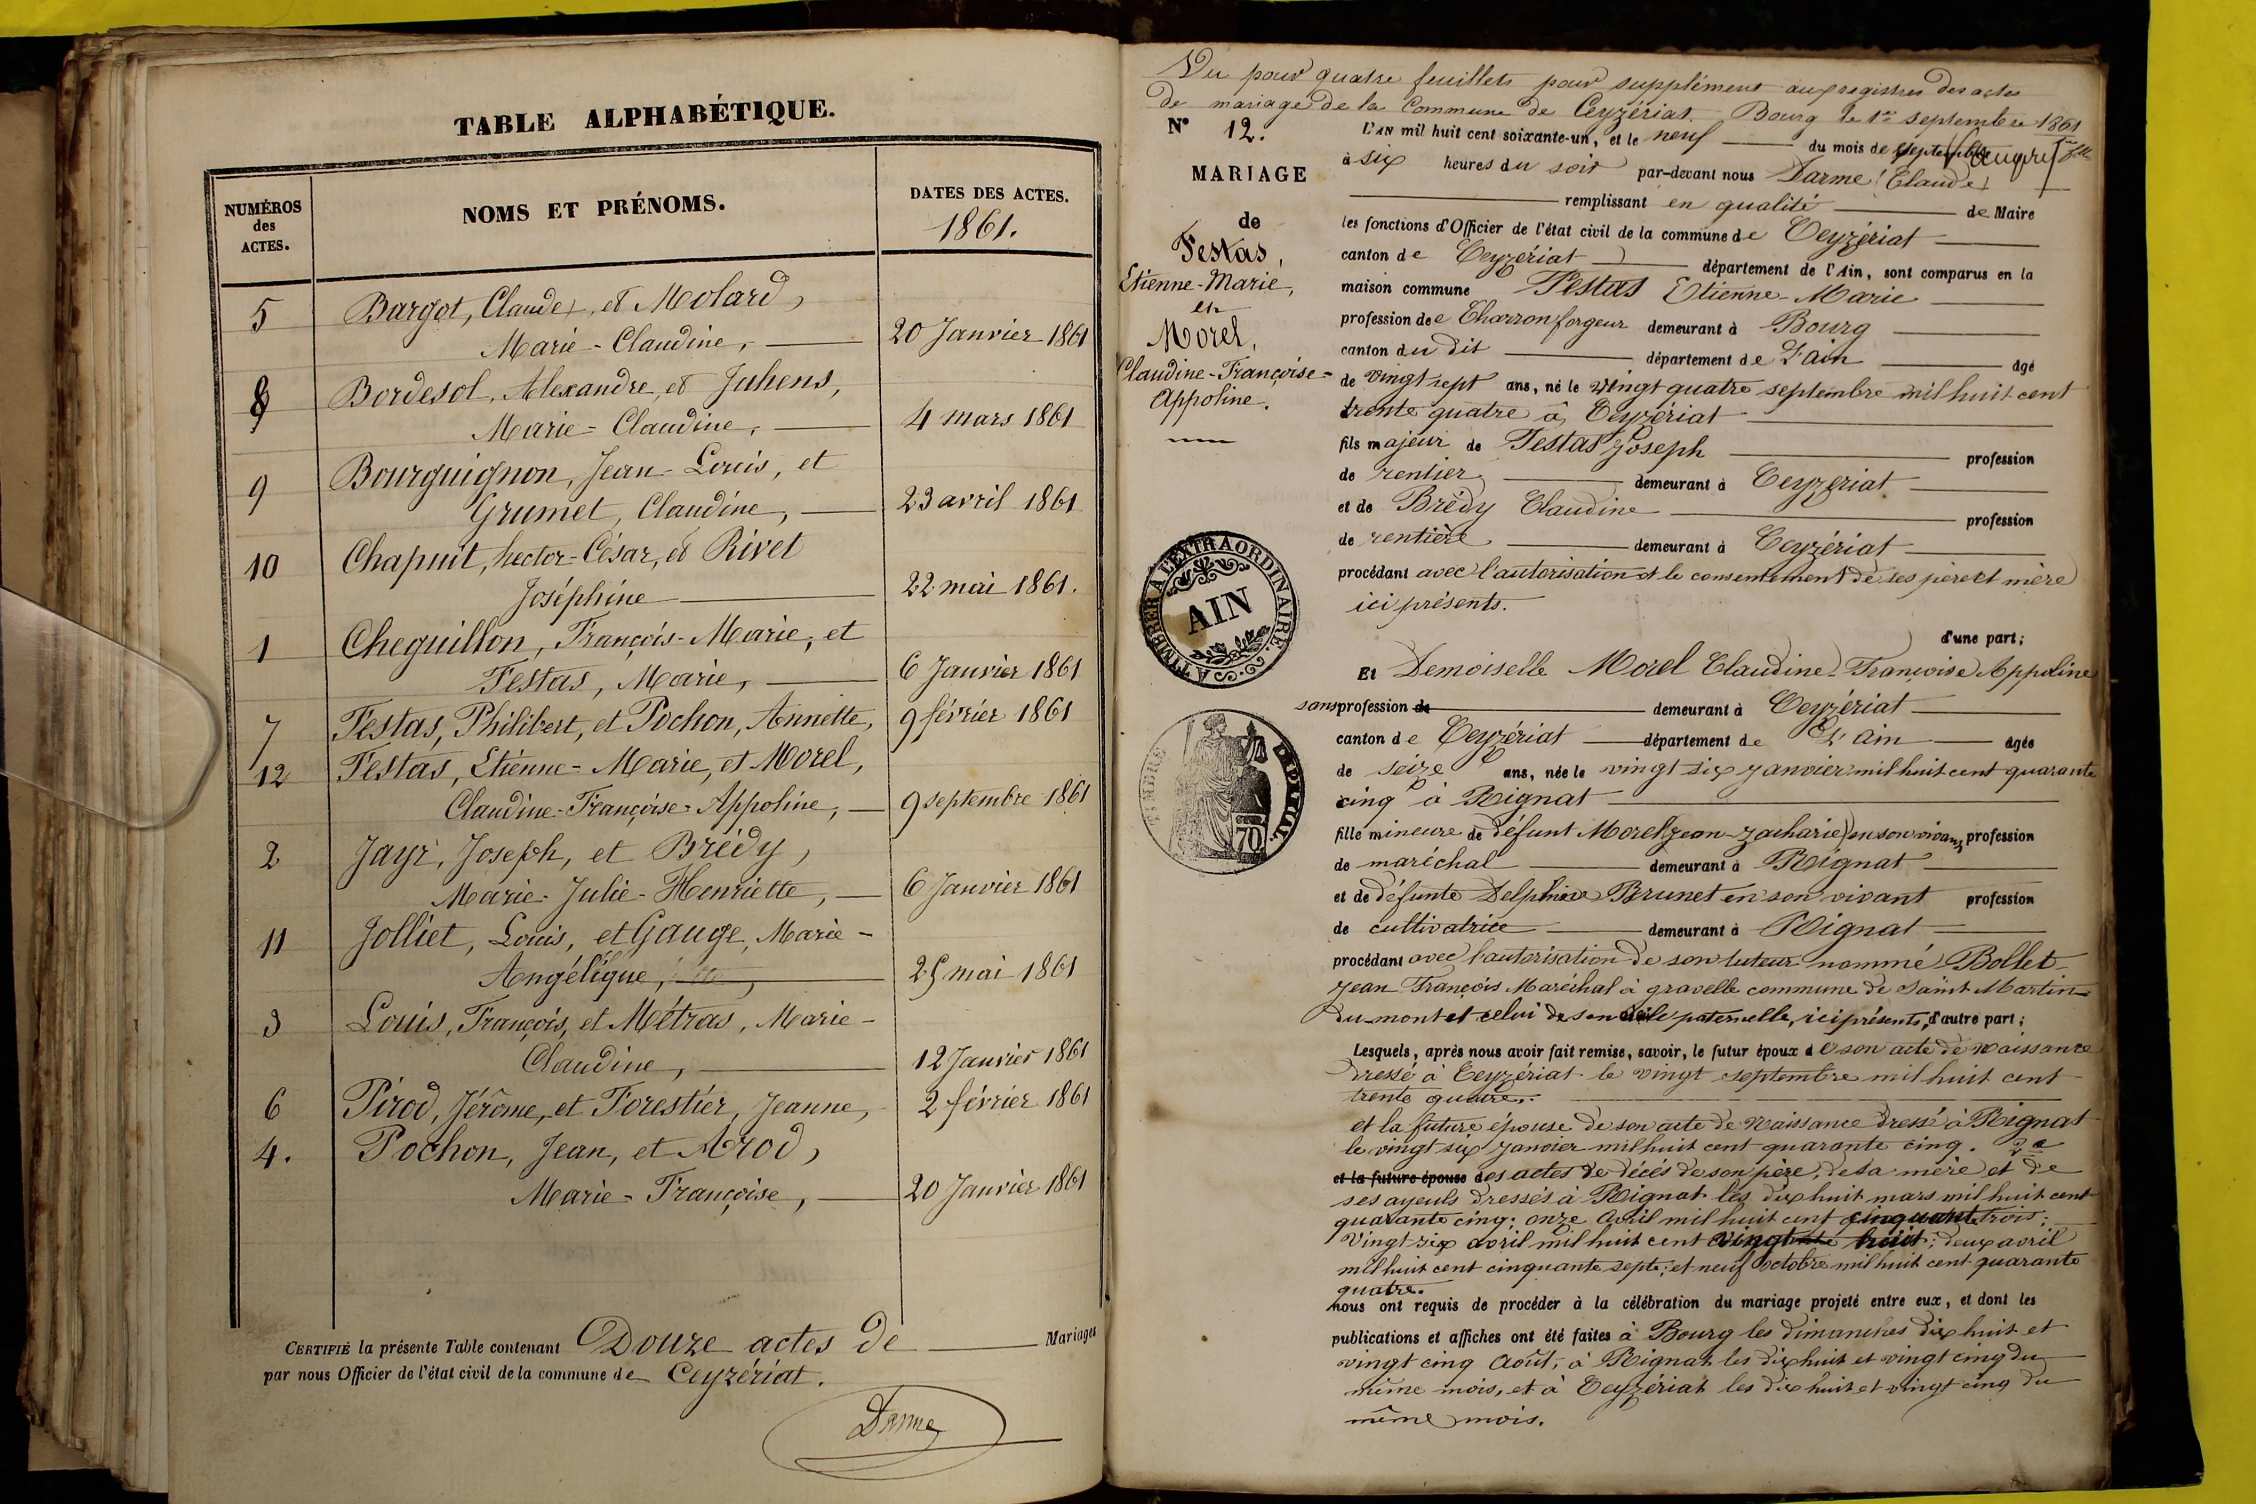 TABLE ALPHABÉTIQUE.
NUMÉROS
des
ACTES.
NOMS ET PRÉNOMS.
DATES DES ACTES.
1861.
5 Bargot, Claude, et Molard,
Marie-Claudine, 20 Janvier 1861
8 Bordesol, Alexandre, et Juhens,
Marie-Claudine, 4 mars 1861
9 Bourguignon, Jean-Louis, et
Grumet, Claudine, 23 avril 1861
10 Chapuit, hector-César, et Rivet
Joséphine 22 mai 1861.
1 Cheguillon, François-Marie, et
Festas, Marie, 6 Janvier 1861
7 Festas, Philibert, et Pochon, Annette, 9 février 1861
12 Festas, Etienne-Marie, et Morel,
Claudine-Françoise-Appoline, 9 septembre 1861
2 Jayr, Joseph, et Brédy,
Marie-Julie-Henriette, 6 Janvier 1861
11 Jolliet, Louis, et Gauge, Marie-
Angélique, 25 mai 1861
3 Louis, François, et Métras, Marie-
Claudine, 12 Janvier 1861
6 Pirod, Jérôme, et Forestier, Jeanne, 2 février 1861
4. Pochon, Jean, et Arod,
Marie-Françoise, 20 Janvier 1861
CERTIFIÉ la présente Table contenant Douze actes de Mariages
par nous Officier de l'état civil de la commune de Ceyzériat.
Darme
Vu pour quatre feuillets pour supplément aux registres des actes
de mariage de la Commune de Ceyzériat. Bourg le 1er septembre 1861
N° 12.
MARIAGE
de
Festas,
Etienne-Marie,
et
Morel,
Claudine-Françoise-
Appoline.
A TIMBRER A L'EXTRAORDINAIRE.
AIN
TIMBRE
70
L'AN mil huit cent soixante-un, et le neuf du mois de septembre
à six heures du soir par-devant nous Darme Claude
remplissant en qualité de Maire
les fonctions d'Officier de l'état civil de la commune de Ceyzériat
canton de Ceyzériat département de l'Ain, sont comparus en la
maison commune Festas Etienne-Marie
profession de Charron forgeur demeurant à Bourg
canton du dit département de L'ain âgé
de vingt sept ans, né le vingt quatre septembre mil huit cent
trente quatre à Ceyzériat
fils majeur de Festas Joseph profession
de rentier demeurant à Ceyzériat
et de Brédy Claudine profession
de rentière demeurant à Ceyzériat
procédant avec l'autorisation et le consentement de ses père et mère
ici présents.
d'une part;
Et Demoiselle Morel Claudine-Françoise Appoline
sans profession de demeurant à Ceyzériat
canton de Ceyzériat département de L'ain âgée
de seize ans, née le vingt six janvier mil huit cent quarante
cinq à Rignat
fille mineure de défunt Morel jean-Zacharie en son vivant profession
de maréchal demeurant à Rignat
et de défunte Delphine Brunet en son vivant profession
de cultivatrice demeurant à Rignat
procédant avec l'autorisation de son tuteur nommé Bollet
jean François Maréchal à gravelle commune de Saint Martin
du-mont et celui de son paternelle, ici présents, d'autre part;
Lesquels, après nous avoir fait remise, savoir, le futur époux de son acte de naissance
dressé à Ceyzériat le vingt septembre mil huit cent
trente quatre.
et la future épouse de son acte de naissance dressé à Rignat
le vingt six janvier mil huit cent quarante cinq.
et la future épouse des actes de décès de son père, de sa mère et de
ses ayeuls dressés à Rignat les dix huit mars mil huit cent
quarante cinq; onze avril mil huit cent cinquante trois;
vingt six avril mil huit cent vingt huit; deux avril
mil huit cent cinquante sept; et neuf octobre mil huit cent quarante
quatre.
nous ont requis de procéder à la célébration du mariage projeté entre eux, et dont les
publications et affiches ont été faites à Bourg les dimanches dix huit et
vingt cinq Août; à Rignat les dix huit et vingt cinq du
même mois, et à Ceyzériat les dix huit et vingt cinq du
même mois.